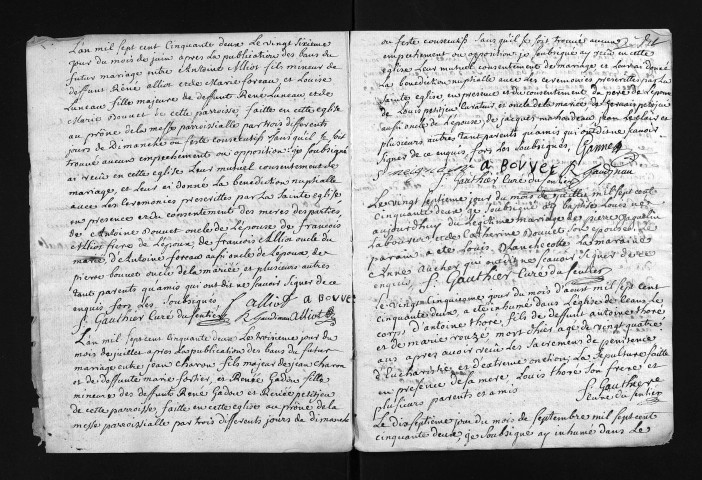 L'an mil sept cent Cinquante deux Le vingt Sixieme
jour du mois de juin apres la publication des bans du
futur mariage entre Antoine Alliot fils mineur de
deffunt René alliot et de Marie foreau et Louise
Luneau fille majeure de deffunt René Luneau et de
Marie Bouvet de cette paroisse, faitte en cette eglise
au prône de la messe paroissialle par trois differents
jours de Dimanche ou feste consecutifs sans qu'il se soit
trouvé aucuns empechements ou opposition je Soubsigné
ai reçu en cette eglise Leur mutuel consentement de
mariage, et Leur ai donné La benediction nuptialle
avec Les Ceremonies prescrittes par La Sainte eglise
en presence et du consentement des meres des parties,
de Antoine Bouvet oncle de L'epouse de francois
Alliot frere de L'epoux, de francois Alliot oncle du
marié d'Antoine foreau aussi oncle de L'epoux de
pierre bouvet oncle de la mariée et plusieurs autres
tant parents qu'amis qui ont dit ne sçavoir Signer de ce
enquis fors Les Soubsignés
f. alliot a Bouvet
S. Gauthier Curé du Sentier
L'an mil sept cent cinquante deux Le troisieme jour du
mois de juillet apres La publication des bans du futur
mariage entre jean charon fils majeur de jean Charon
et de deffunte marie fortier, et Renée Gadou fille
mineure des deffunts René Gadou et Renée petitjeu
de cette paroisse, faitte en cette eglise au prône de la
messe paroissialle par trois differents jours de dimanche
ou feste consecutifs Sans qu'il se soit trouvé aucun
empechement ou opposition je soubsigné ay reçu en cette
eglise Leur mutuel consentement de mariage, et Leur ai donné
La benediction nuptialle avec des ceremonies prescrittes par La
Sainte eglise en presence et du consentement du pere de L'epoux
de Louis petitjeu Curateur et oncle de la mariée de Germain petitjeu
aussi oncle de L'epouse de jacques
plusieurs autres tant parents qu'amis qui ont dit ne scavoir
Signer de ce enquis, fors Les Soubsignés,
a Bouvet
S. Gauthier Curé du Sentier
Le vingt Septieme jour du mois de juillet mil sept cent
cinquante deux je Soubsigné ay baptisé Louis né
aujourdhuy du Legitime mariage de pierre
Laboureur et de Catherine Bouvet Son epouse Le
parain a été Louis Blanchecotte La maraine
Anne qui ont dit ne scavoir Signer de ce
enquis, S. Gauthier Curé du Sentier
Le vingt cinquieme jour du mois d'aoust mil sept cent
cinquante deux, a été inhumé dans L'eglise de ceans Le
corps d'antoine thoré, fils de deffunt antoine thoré
et de marie rouzé mort chés agé de vingt quatre
ans apres avoir reçu Les Sacremens de penitence
d'Eucharistie et d'extreme onction; La Sepulture faitte
en presence de sa mere, Louis thoré Son frere et
plusieurs parents et amis S. Gauthier
Curé du Sentier
Le dix septieme jour du mois de Septembre mil sept cent
cinquante deux je Soubsigné ay inhumé dans Le